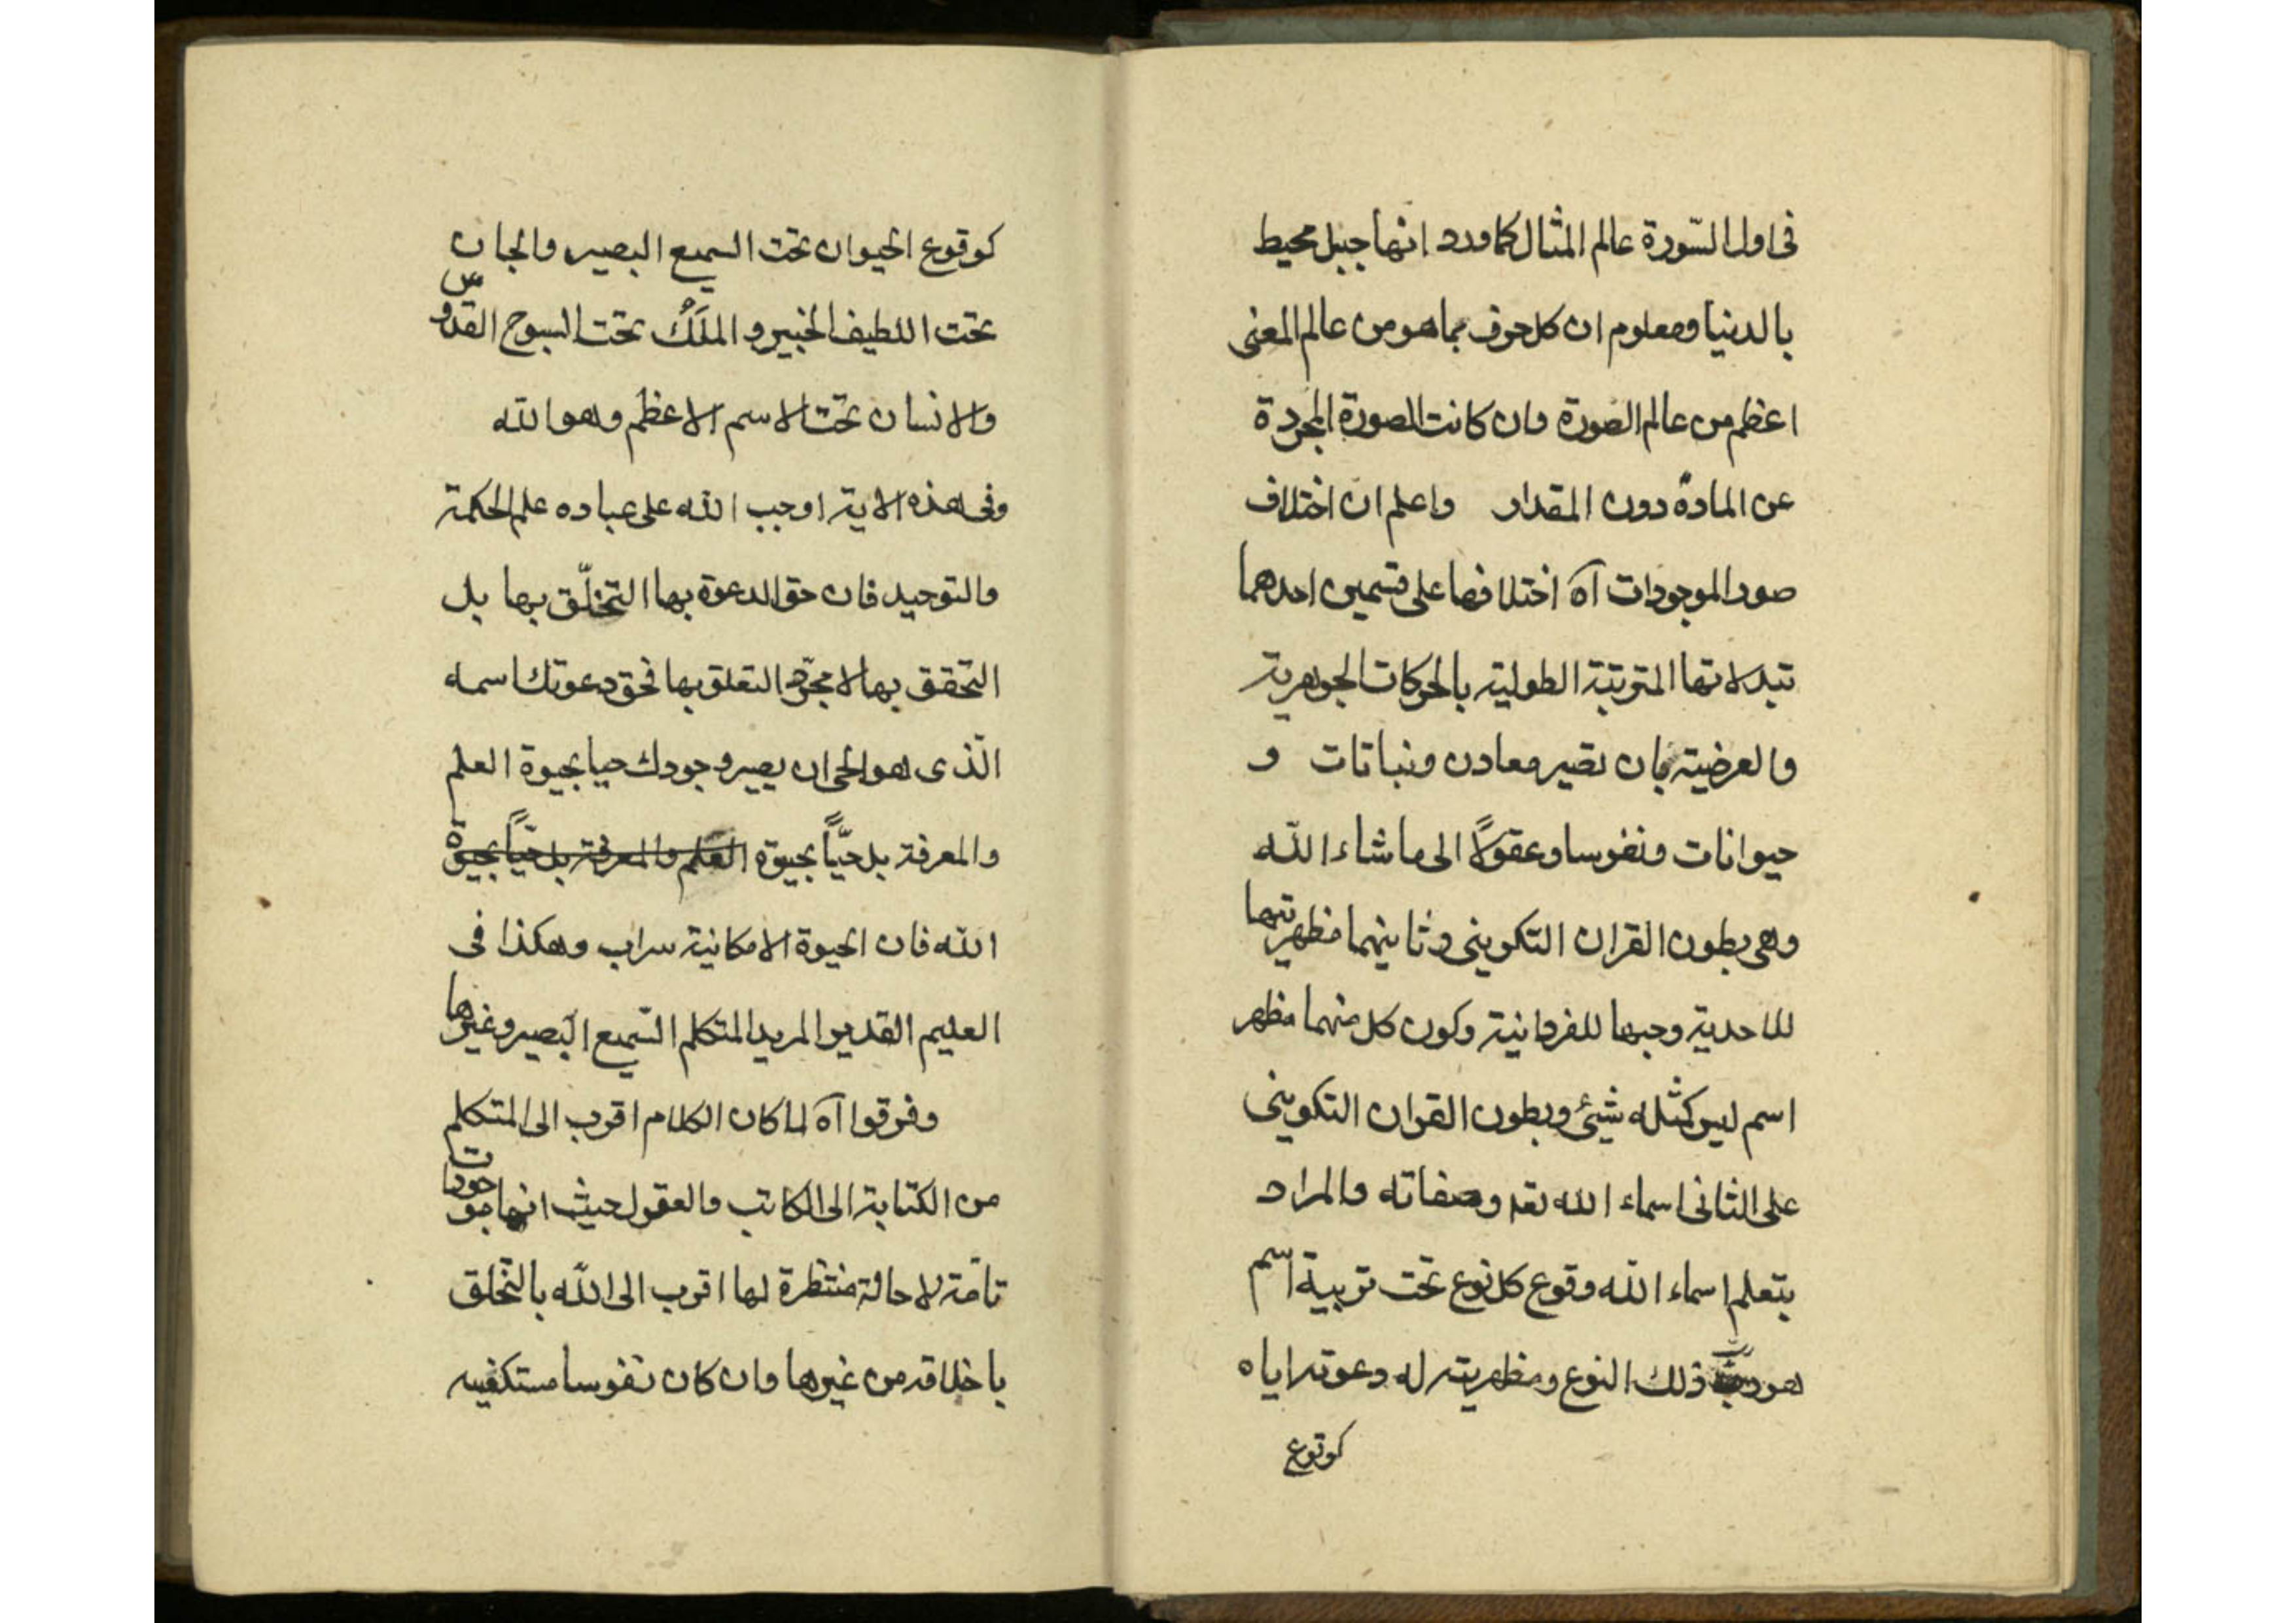 فى اول السّورة عالم المثال كما ورد انها جبل محيط
بالدنيا ومعلوم ان كل حرف بما هو من عالم المعنى
اعظم من عالم الصورة وان كانت الصورة المجردة
عن المادة دون المقدار واعلم ان اختلاف
صور الموجودات آه اختلافها على قسمين احدهما
تبدلاتها المترتبة الطولية بالحركات الجوهرية
والعرضية بان تصير معادن ونباتات و
حيوانات ونفوسا وعقولًا الى ما شاء الله
وهى بطون القران التكوينى وثانيهما مظهريتها
للاحدية وجهها للفردانية وكون كل منهما مظهر
اسم ليس كمثله شيئ وبطون القران التكوينى
على الثانى اسماء الله تعه وصفاته والمراد
بتعلم اسماء الله وقوع كل نوع تحت تربية اسم
هو ربّ ذلك النوع ومظهريته له دعوته اياه
كوقوع
كوقوع الحيوان تحت السميع البصير والجان
تحت اللطيف الخبير و الملَكُ تحت السبوح القدّوس
والانسان تحت الاسم الاعظم وهو الله
وفى هذه الاية اوجب الله على عباده علم الحكمة
والتوحيد فان حق الدعوة بها التخلّق بها بل
التحقق بها لا مجرّد التعلق بها فحق دعوتك اسمه
الّذى هو الحى ان يصير وجودك حيا بحيوة العلم
والمعرفة بل حيّاً بحيوة العلم والمعرفة بل حيّاً بحيوة
الله فان الحيوة الامكانية سراب وهكذا فى
العليم القدير المريد المتكلم السّميع البصير وغيرها
وفرقوا آه لما كان الكلام اقرب الى المتكلم
من الكتابة الى الكاتب والعقول حيث انها موجودات
تامّة لا حالة منتظرة لها اقرب الى الله بالتخلق
باخلاقه من غيرها وان كان نفوسا مستكفيه